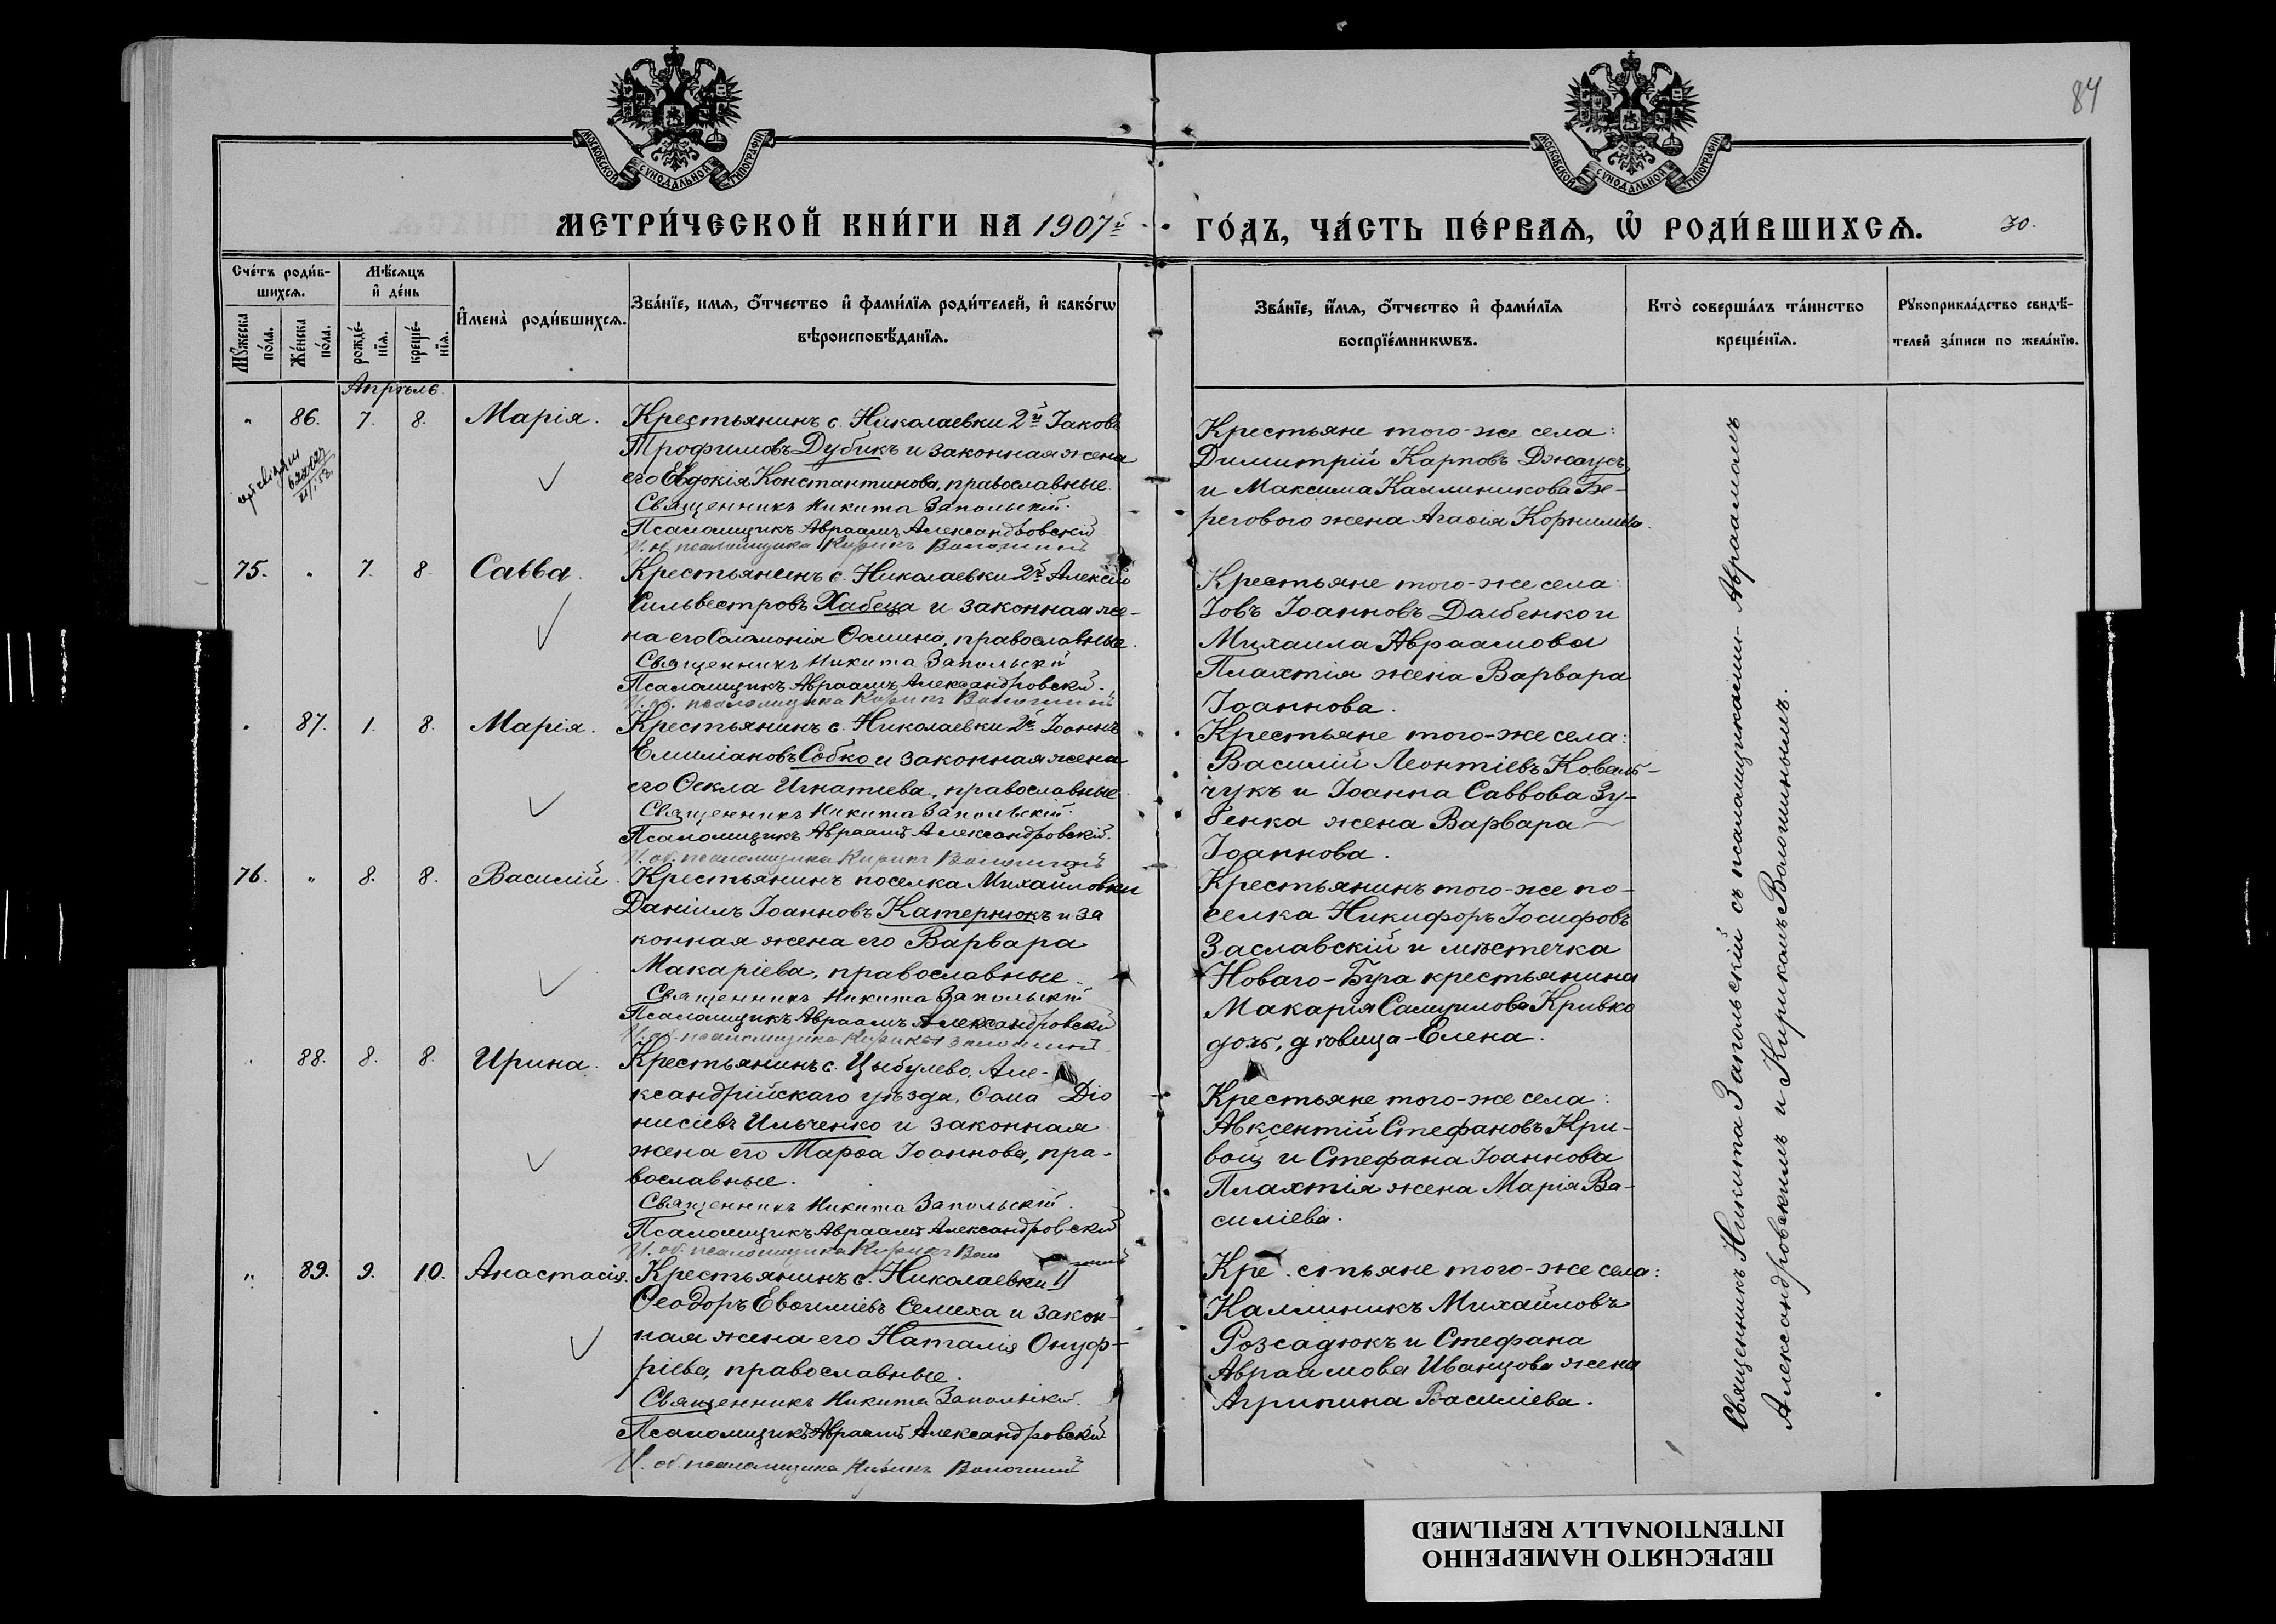 84
МОСКОВСКОЙ СѴНОДАЛЬНОЙ ТИПОГРАФІИ
МОСКОВСКОЙ СѴНОДАЛЬНОЙ ТИПОГРАФІИ
МЕТРИ́ЧЕСКОЙ КНИ́ГИ НА 1907й
ГО́ДЪ, ЧА́СТЬ ПЕ́РВАѦ, Ѽ РОДИ́ВШИХСѦ.
30.
Сче́тъ роди́в-
шихсѧ.
Мꙋ́жеска по́ла.
Же́нска по́ла.
Мѣ́сяцъ
и҆ де́нь
рожде́-нїѧ.
креще́-нїѧ.
И҆мена̀ роди́вшихсѧ.
Зва́нїе, имѧ, ѻ҆́тчество и҆ фами́лїѧ роди́телей, и҆ како́гѡ
вѣроисповѣ́данїѧ.
Зва́нїе, и҆́мѧ, ѻ҆́тчество и҆ фами́лїѧ
воспрїе́мникѡвъ.
Кто̀ соверша́лъ та́инство
креще́нїѧ.
Рꙋкоприкла́дство свидѣ́-
телей за́писи по жела́нїю.
Апрѣль.
" 86. 7. 8. Марія.
Крестьянинъ с. Николаевки 2й Іаковъ
Трофимовъ Дубикъ и законная жена
его Евдокія Константинова, православные.
Священникъ Никита Запольскій.
Псаломщикъ Авраамъ Александровскій
И. об. псаломщика Кирикъ Волошинъ
Крестьяне того-же села:
Димитрій Карповъ Джаусъ
и Максима Каллиникова Бе-
регового жена Агаѳія Корнилова.
75. " 7. 8. Савва.
Крестьянинъ с. Николаевки 2й Алексій
Сильвестровъ Хабеца и законная же-
на его Саломонія Ѳомина, православные.
Священникъ Никита Запольскій
Псаломщикъ Авраамъ Александровскій.
И. об. псаломщика Кирикъ Волошинъ
Крестьяне того-же села:
Іовъ Іоанновъ Далбенко и
Михаила Авраамова
Плахтія жена Варвара
Іоаннова.
" 87. 1. 8. Марія.
Крестьянинъ с. Николаевки 2й Іоаннъ
Емиліановъ Собко и законная жена
его Ѳекла Игнатиева, православные
Священникъ Никита Запольскій.
Псаломщикъ Авраамъ Александровскій.
И. об. псаломщика Кирикъ Волошинъ
Крестьяне того-же села:
Василій Леонтіевъ Коваль-
чукъ и Іоанна Саввова Зу-
бенка жена Варвара
Іоаннова.
76. " 8. 8. Василій.
Крестьянинъ поселка Михайловки
Даніилъ Іоанновъ Катернюкъ и за
конная жена его Варвара
Макаріева, православные.
Священникъ Никита Запольскій
Псаломщикъ Авраамъ Александровскій
И. об. псаломщика Кирикъ Волошинъ
Крестьянинъ того-же по-
селка Никифоръ Іосифовъ
Заславскій и мѣстечка
Новаго-Буга крестьянина
Макарія Самуилова Кривко
дочь, дѣвица - Елена.
" 88. 8. 8. Ирина.
Крестьянинъ с. Цыбулево, Але-
ксандрійскаго уѣзда, Ѳома Діо
нисіевъ Ильченко и законная
жена его Марѳа Іоаннова, пра-
вославные.
Священникъ Никита Запольскій.
Псаломщикъ Авраамъ Александровскій
И. об. псаломщика Кирикъ Волошинъ
Крестьяне того-же села:
Авксентій Стефановъ Кри-
вой и Стефана Іоаннова
Плахтія жена Марія Ва-
силіева.
" 89. 9. 10. Анастасія.
Крестьянинъ с. Николаевки II
Ѳеодоръ Евѳиміевъ Семеха и закон-
ная жена его Наталія Онуф-
ріева, православные.
Священникъ Никита Запольскій.
Псаломщикъ Авраамъ Александровскій
И. об. псаломщика Кирикъ Волошинъ
Кре.стьяне того-же села:
Каллиникъ Михайловъ
Розсадюкъ и Стефана
Авраамова Иванцова жена
Агрипина Василіева.
Священникъ Никита Запольскій съ псаломщиками - Авраамомъ
Александровскимъ и Кирикомъ Волошинымъ.
ПЕРЕСНЯТО НАМЕРЕННО
INTENTIONALLY REFILMED